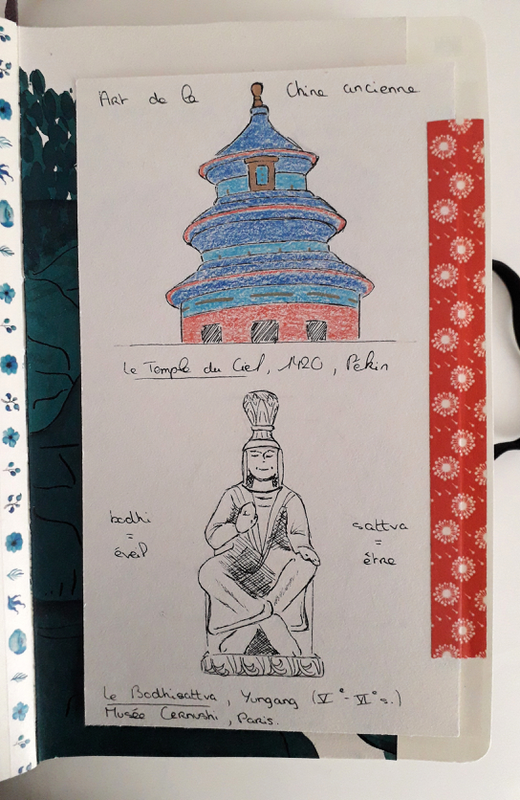 Art de la Chine ancienne
Le Temple du Ciel, 1420, Pékin
bodhi
=
éveil
sattva
=
être
Le Bodhisattva, Yungang (Ve-VIe s.)
Musée Cernushi, Paris.